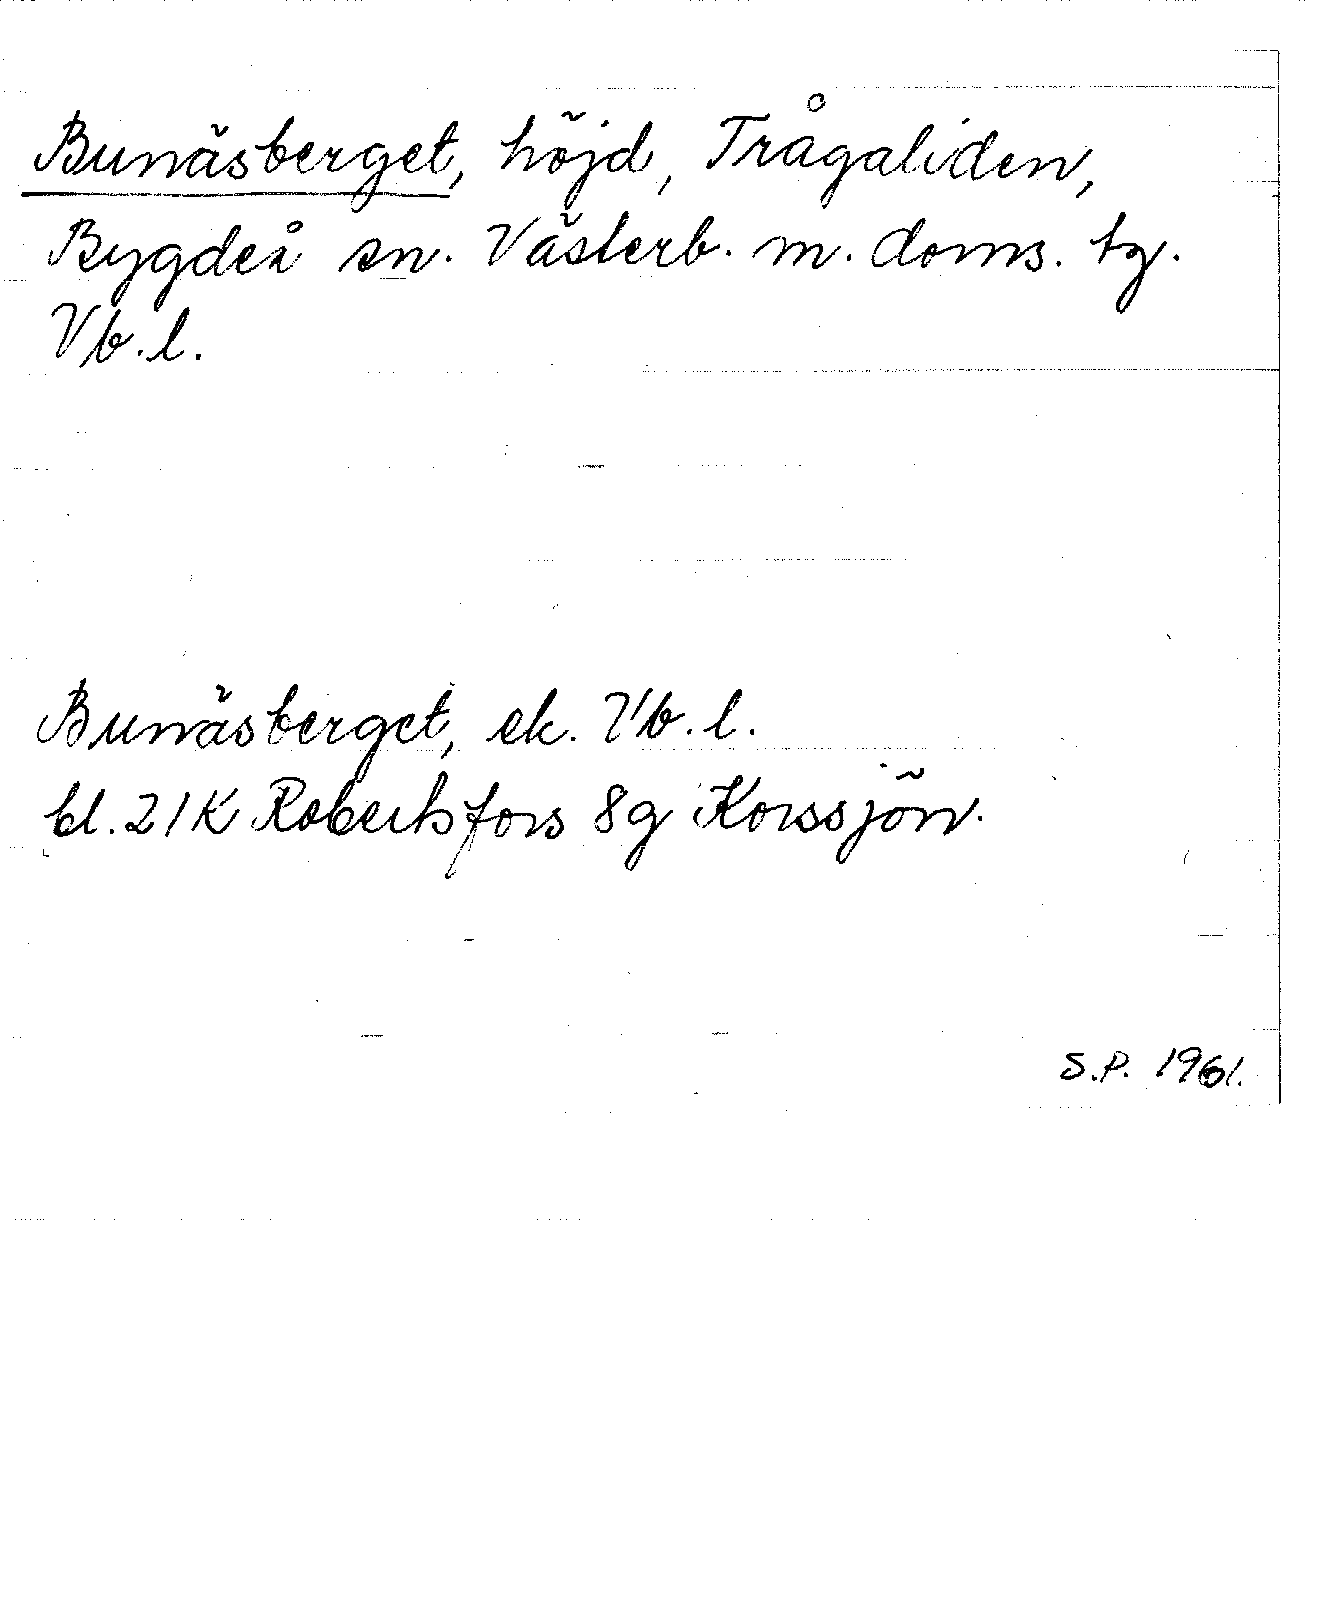 Bunäsberget, höjd, Trågaliden,
Bygdeå sn. Västerb. m. doms. tg.
Vb.l.
Bunäsberget, ek. Vb.l.
bl. 21K Robertsfors 8g Korssjön.
S.P. 1961.